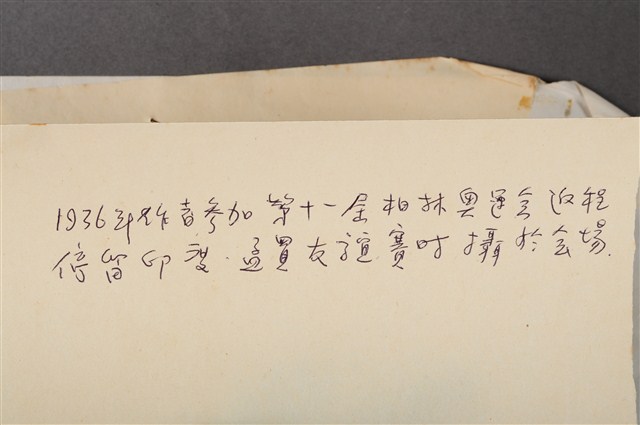 1936年作者参加第十一届柏林奥運会返程
停留印度.孟買友誼賽时攝於会場.